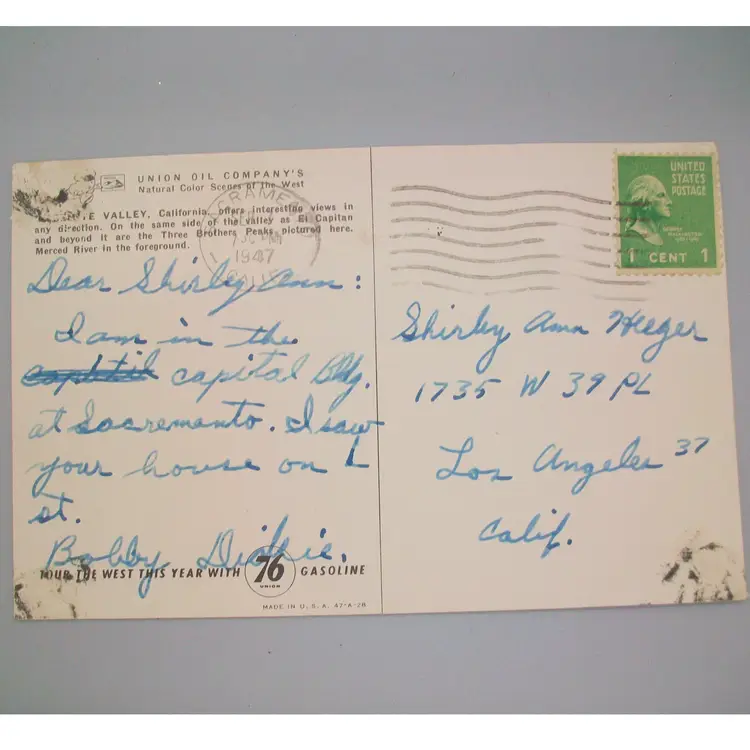 UNION OIL COMPANY'S
Natural Color Scenes of the West
VALLEY, California, offers interesting views in
any direction. On the same side of the valley as El Capitan
and beyond it are the Three Brothers Peaks pictured here.
Merced River in the foreground.
1947
CALIF
UNITED
STATES
POSTAGE
GEORGE
WASHINGTON
1 CENT 1
Dear Shirley Ann:
I am in the
capital Bldg.
at Sacremento. I saw
your house on L
st.
Bobby
TOUR THE WEST THIS YEAR WITH 76 GASOLINE
UNION
MADE IN U. S. A. 47-A-28
Shirley Ann Heeger
1735 W 39 PL
Los Angeles 37
Calif.